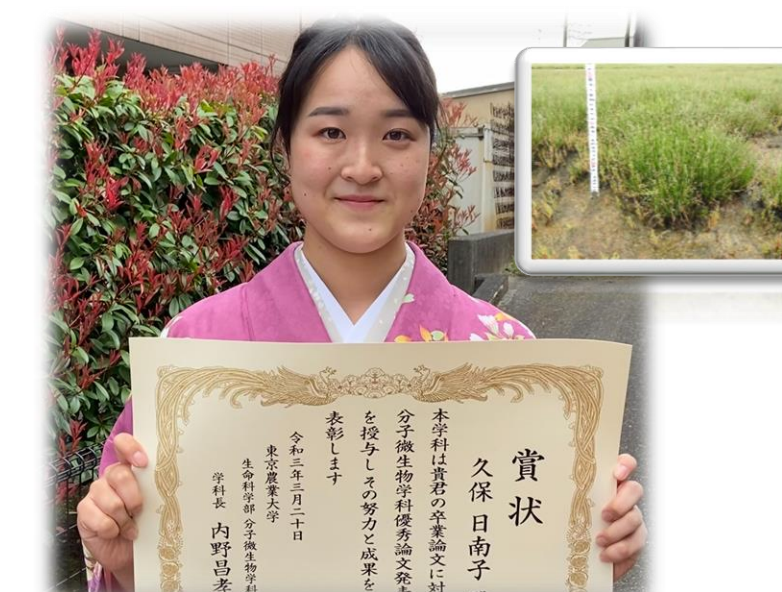 賞状
久保 日南子
本学科は貴君の卒業論文に対
分子微生物学科優秀論文発表
を授与しその努力と成果を
表彰します
令和三年三月二十日
東京農業大学
生命科学部 分子微生物学科
学科長 内野昌孝